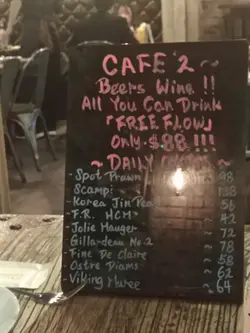 ~ CAFE 2 ~
Beers Wine !!
All You Can Drink
「FREE FLOW」
Only $88 !!!
~ DAILY ~
- Spot Prawn 98
- Scampi 38
- Korea Jin Pea 56
- F.R. HCM ~ 42
- Jolie Mauger ~ 72
- Gillardeau No.2 ~ 78
- Fine De Claire ~ 58
- Ostre Diams ~ 62
- Viking Maree ~ 64